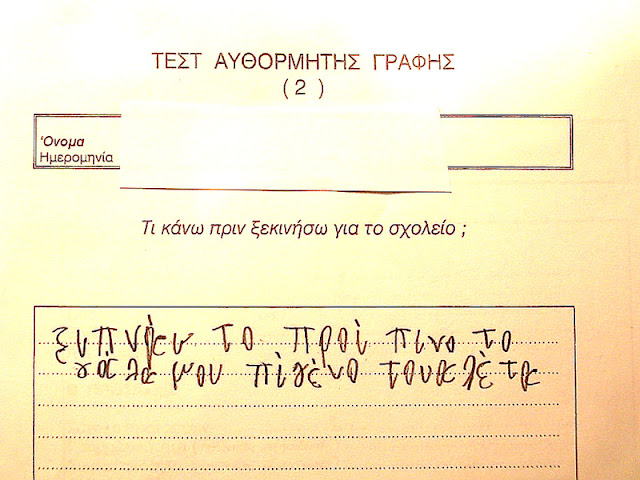 ΤΕΣΤ ΑΥΘΟΡΜΗΤΗΣ ΓΡΑΦΗΣ
( 2 )
Όνομα
Ημερομηνία
Τι κάνω πριν ξεκινήσω για το σχολείο ;
το προί πινο το
γάλα μου πιγένο τουαλέτα